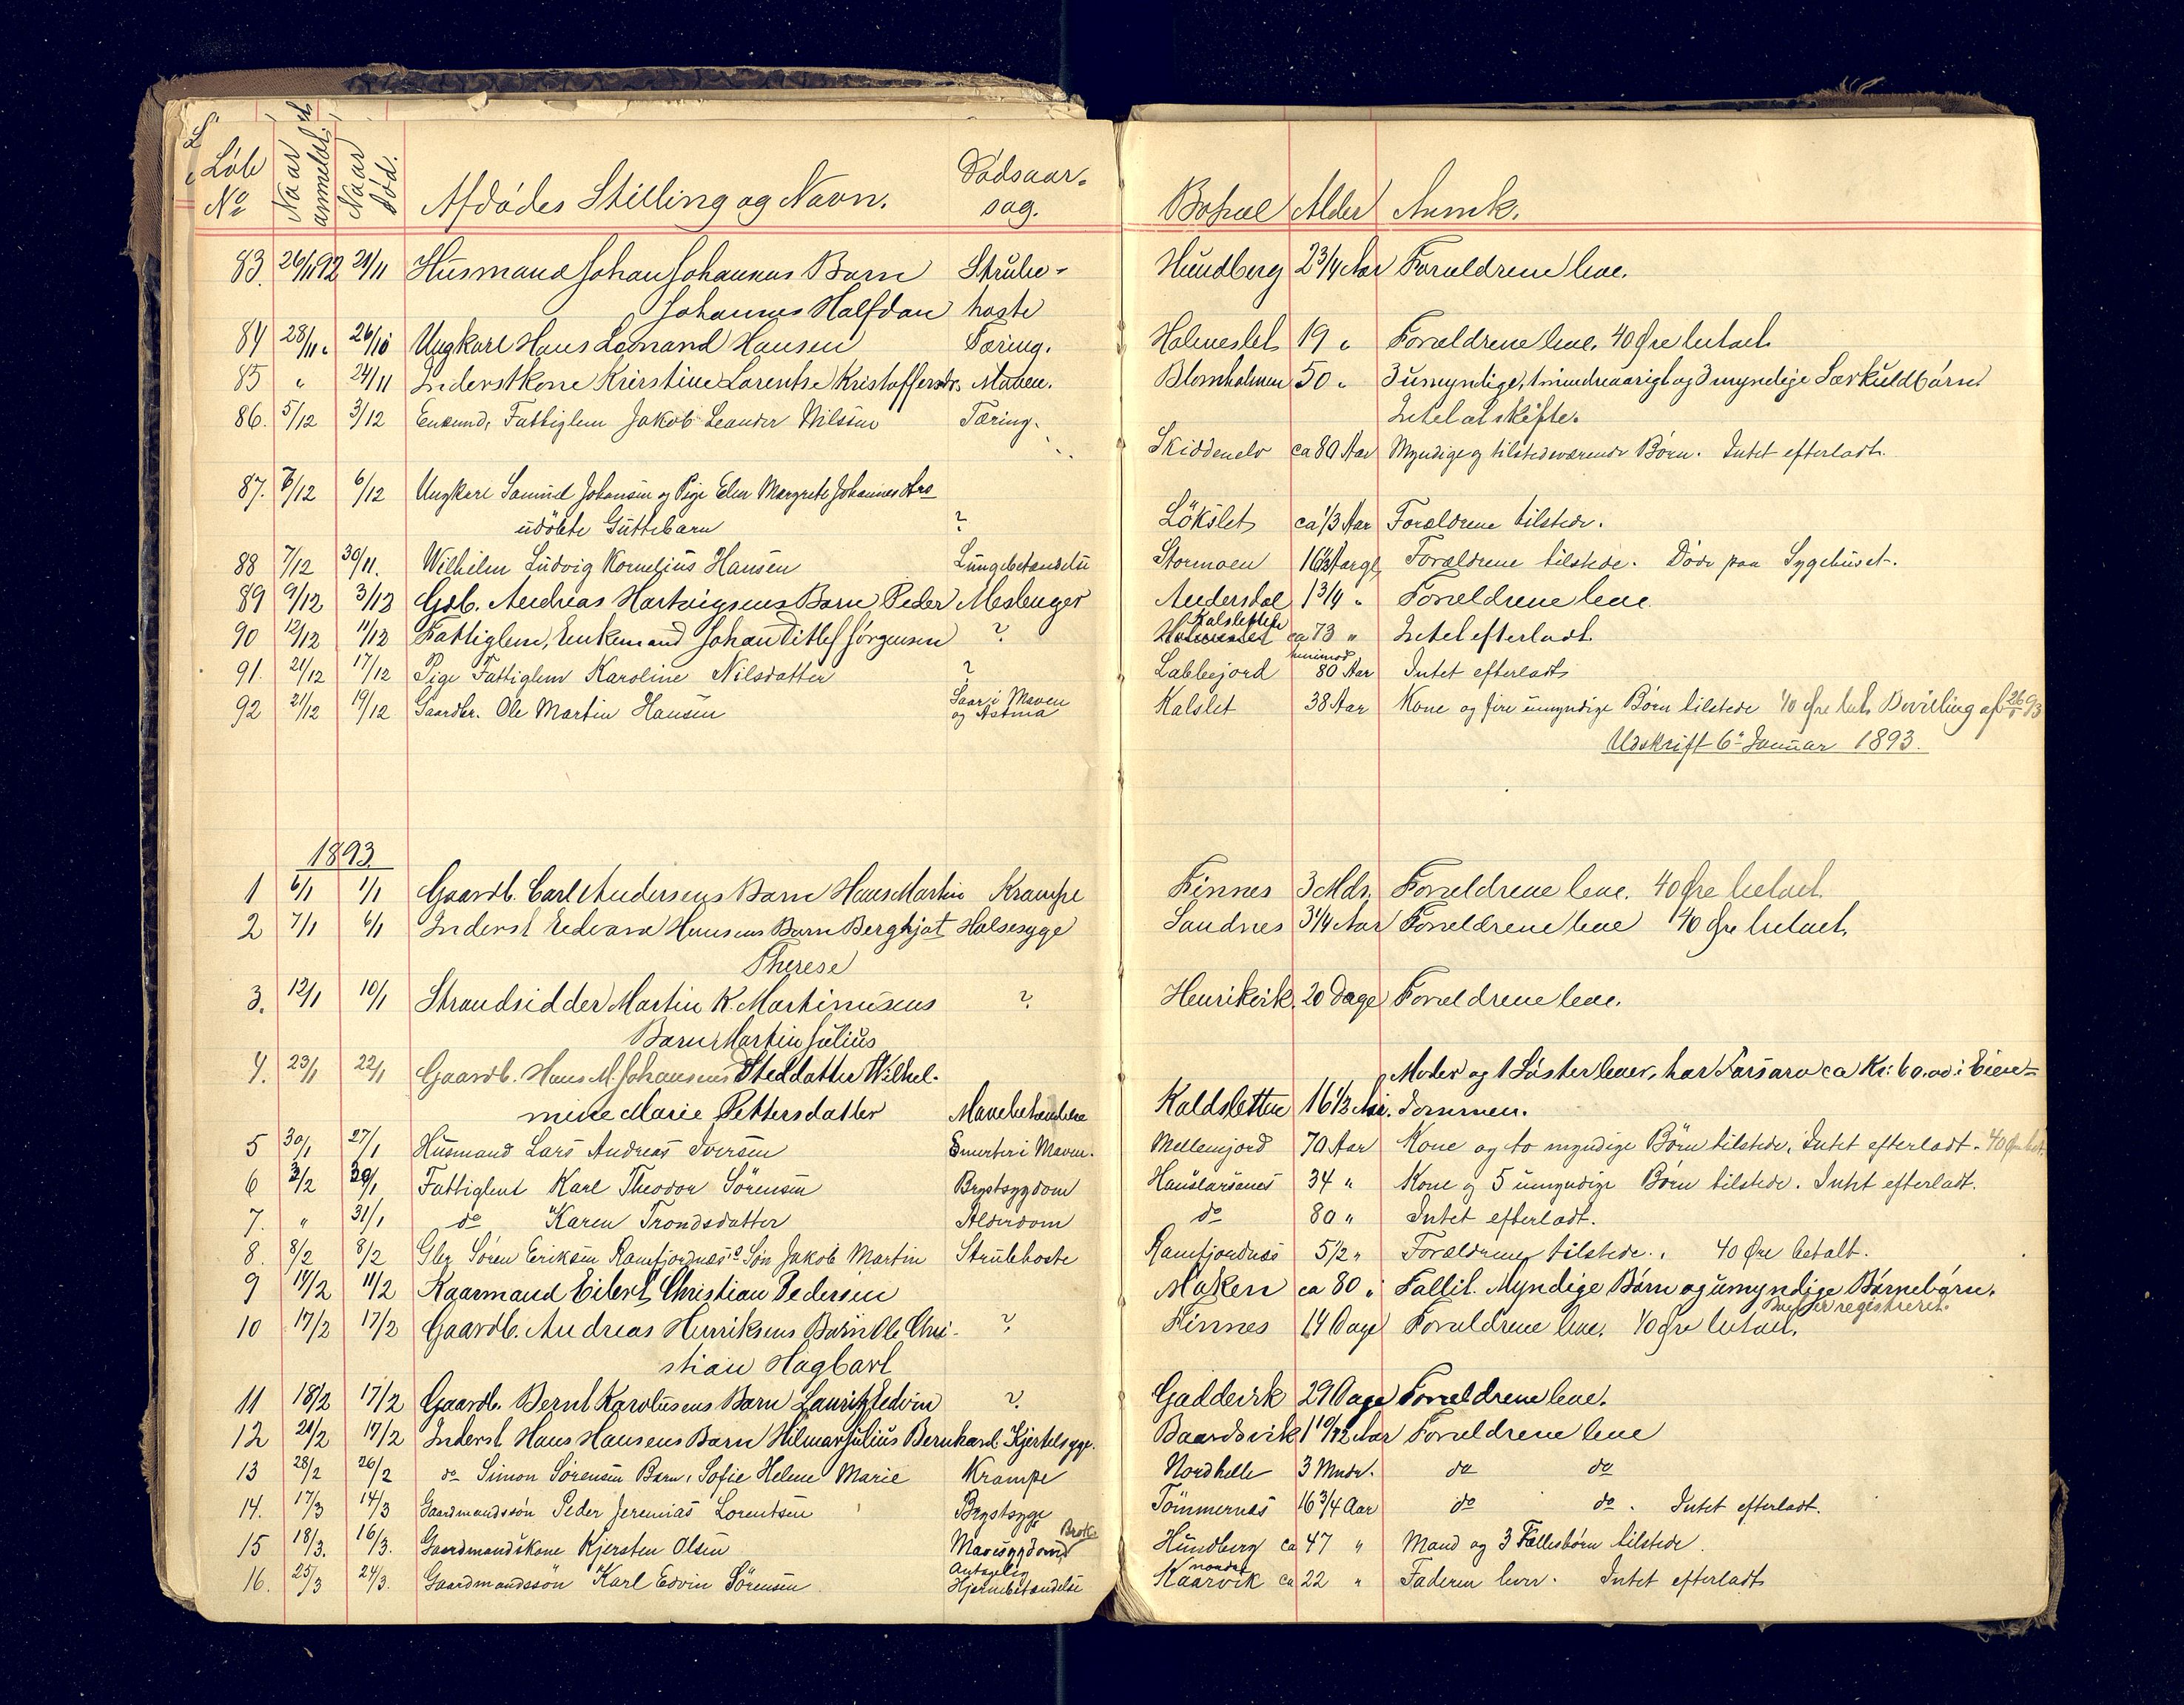 Løb No Naar anmeldt Naar død. Afdødes Stilling og Navn. Dødsaar- Bopæl Alder Anmk.
sag.
83. 26/11 92 21/11 Husmand Johan Johansens Barn Strube- Hundberg 2 3/4 Aar Forældrene leve.
Johannes Halfdan hoste
84 28/11 " 26/10 Ungkarl Hans Leonard Hansen Tæring. Holmeslet 19 " Forældrene leve. 40 Øre betalt
85 " 24/11 Inderstkone Kristine Larentse Kristoffersdr. Maven. Blomholmen 50 " 3 umyndige, 1 mindreaarigt og 3 myndige Særkuldbørn
Intet at skifte.
86. 5/12 3/12 Enkemd, Fattiglem Jakob Leander Nilssen Tæring. Skiddenelv ca 80 Aar Myndige og tilstedeværende Børn. Intet efterladt.
87. 7/12 6/12 Ungkarl Samuel Johansen og Pige Elen Margrete Johannesdtrs
udöbte Guttebarn ? Lökslet ca 1/3 Aar Forældrene tilstede.
88 7/12 30/11. Wilhelm Ludvig Kornelius Hansen Lungebetændelse Stormoen 16 1/2 Aargl Forældrene tilstede. Døde paa Sygehuset.
89 9/12 3/12 Gdb. Andreas Hartvigsens Barn Peder Meslenger Andersdal 1 3/4 " Forældrene leve
90 12/12 11/12 Fattiglem, Enkemand Johan Ditlef Jørgensen ? Kalsletten ca 73 " Intet efterladt.
91. 21/12 17/12 Pige Fattiglem Karoline Nilsdatter ? Labbejord henimod 80 Aar Intet efterladt
92 21/12 19/12 Gaardbr. Ole Martin Hansen Saar i Maven og Astma Kalslet 38 Aar Kone og fire umyndige Børn tilstede 40 Øre bet. Bevilling af 26/5 93
Udskrift 6te Januar 1893.
1893
1 6/1 1/1 Gaardb. Carl Andersens Barn Hans Martin Krampe Finnes 3 Mdr. Forældrene leve. 40 Øre betalt.
2 7/1 6/1 Inderst Edvard Hansens Barn Berghjot Halsesyge Sandnes 3 1/4 Aar Forældrene leve 40 Øre betalt.
Therese
3. 12/1 10/1 Strandsidder Martin K. Martinusens ? Henrikvik 20 Dage Forældrene leve.
Barn Martin Julius
4. 23/1 22/1 Gaardb. Hans M. Johansens Steddatter Wilhel- Moder og 1 Søster lever, har Farsarv ca Kr: 60.00 i Eien-
mine Marie Pettersdatter Mavebetændelse Kaldsletten 16 1/2 Aar. dommen.
5 30/1 27/1 Husmand Lars Andreas Iversen Smerter i Maven. Mellemjord 70 Aar Kone og to myndige Börn tilstede, Intet efterladt. 40 Øre bet.
6 3/2 29/1 Fattiglem Karl Theodor Sörensen Brystsygdom Hanslarsenes 34 " Kone og 5 umyndige Börn tilstede. Intet efterladt.
7. " 31/1 do Karen Trondsdatter Alderdom do 80 " Intet efterladt.
8. 8/2 8/2 Gbr Søren Eriksen Ramfjordnæs's Søn Jakob Martin Strubehoste Ramfjordnæs 5 1/2 " Forældrene tilstede. 40 Øre betalt.
9 14/2 11/2 Kaarmand Eilert Christian Pedersen Maken ca 80 " Fallit. Myndige Børn og umyndige Børnebørn.
Boet er registreret.
10 17/2 17/2 Gaardb. Andreas Henriksens Barn Ole Chri- ? Finnes 14 Dage Forældrene leve. 40 Øre betalt.
stian Hagbart
11 18/2 17/2 Gaardb. Bernt Karolusens Barn Lauritz Edvin ? Gaddevik 29 Dage Forældrene leve.
12 21/2 17/2 Inderst Hans Hansens Barn Hilmar Julius Bernhard Kjertelsyge. Baardsvik 1 10/12 Aar Forældrene leve
13 28/2 26/2 do Simon Sørensen Barn, Sofie Helene Marie Krampe Nordhelle 3 Mndr. do do
14. 17/3 14/3 Gaardmandssön Peder Jeremias Lorentsen Brystsyge Tömmernæs 16 3/4 Aar do do. Intet efterladt.
15 18/3. 16/3. Gaardmandskone Kjersten Olsen Mavesygdom Brok Hundberg ca 47 " Mand og 3 Fællesbörn tilstede.
16. 25/3 24/3. Gaardmandssön Karl Edvin Sörensen Antagelig Hjernebetændelse nordre Kaarvik ca 22 " Faderen lever. Intet efterladt